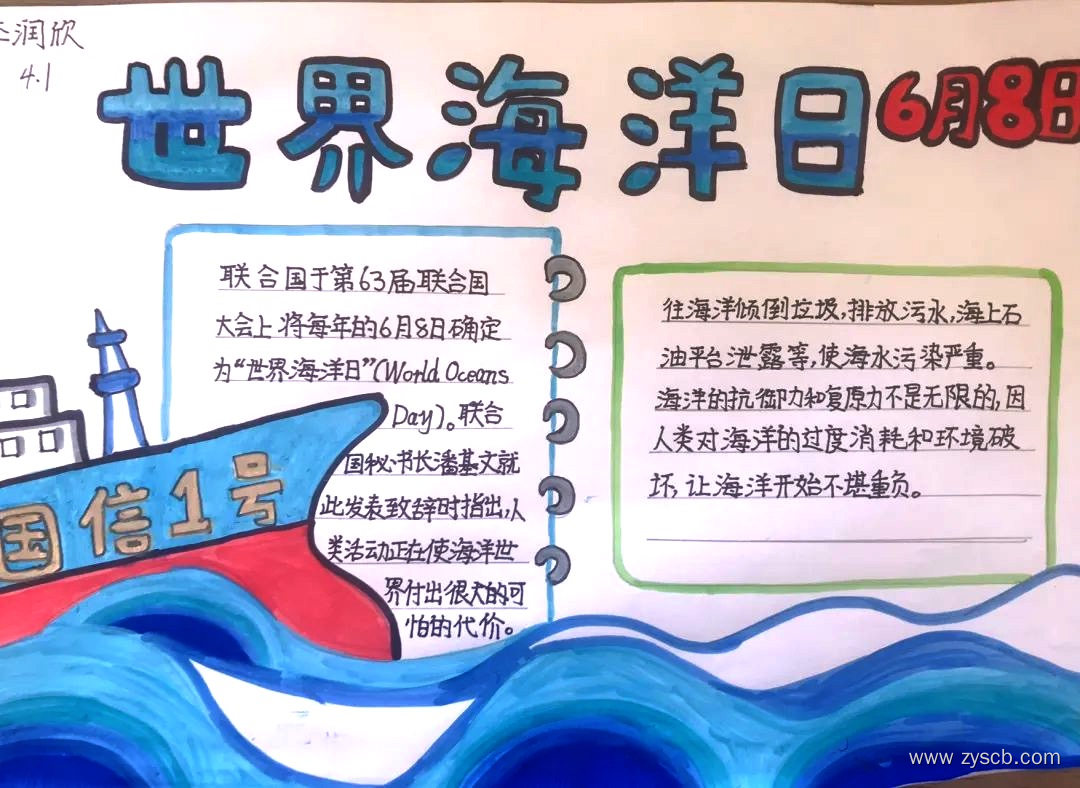 润欣
4.1
世界海洋日
6月8日
联合国于第63届联合国
大会上将每年的6月8日确定
为“世界海洋日”(World Oceans
Day)。联合
国秘书长潘基文就
此发表致辞时指出,人
类活动正在使海洋世
界付出很大的可
怕的代价。
往海洋倾倒垃圾,排放污水,海上石
油平台泄露等,使海水污染严重。
海洋的抗御力和复原力不是无限的,因
人类对海洋的过度消耗和环境破
坏,让海洋开始不堪重负。
国信1号
www zyscb.com